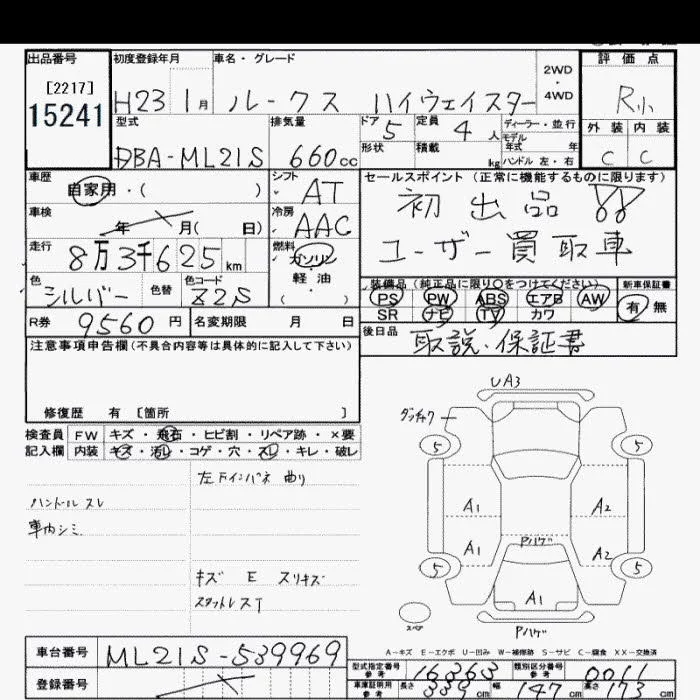 出品番号 初度登録年月 車名・グレード 評価点
[2217]
15241
H23 1月 ルークス ハイウェイスター 2WD・4WD R小
型式 排気量 ドア 5 定員 4人 ディーラー・並行 外装 内装
DBA-ML21S 660cc 形状 積載 kg モデル年式 年 ハンドル 左・右 C C
車歴 シフト セールスポイント(正常に機能するものに限ります)
自家用・( ) AT 初出品!!
車検 冷房
年 月( 日) AAC ユーザー買取車
走行 燃料
8万3千625km ガソリン
色 色替 色コード 軽油 装備品(純正品に限り○をつけてください) 新車保証書
シルバー Z2S ( ) PS PW ABS エアB AW 有 無
R券 9560円 名変期限 月 日 SR ナビ TV カワ
注意事項申告欄(不具合内容等は具体的に記入して下さい) 後日品 取説・保証書
修復歴 有 [箇所 ]
検査員 FW キズ・飛石・ヒビ割・リペア跡・×要
記入欄 内装 キズ・汚レ・コゲ・穴・スレ・キレ・破レ
左下インパネ 曲り
ハンドルスレ
車内シミ
キズ E スリキズ
スタットレスT
UA3
ダッチャク
5 5
A1 A2
A1 Pハゲ A2
5 5
A1
スペア
Pハゲ
A-キズ E-エクボ U-凹み W-補修跡 S-サビ C-腐食 XX-交換済
車台番号 ML21S-539969
型式指定番号 参考 16363 類別区分番号 参考 0011
登録番号
車庫証明用 参考 長さ 339cm 幅 147cm 高さ 173cm